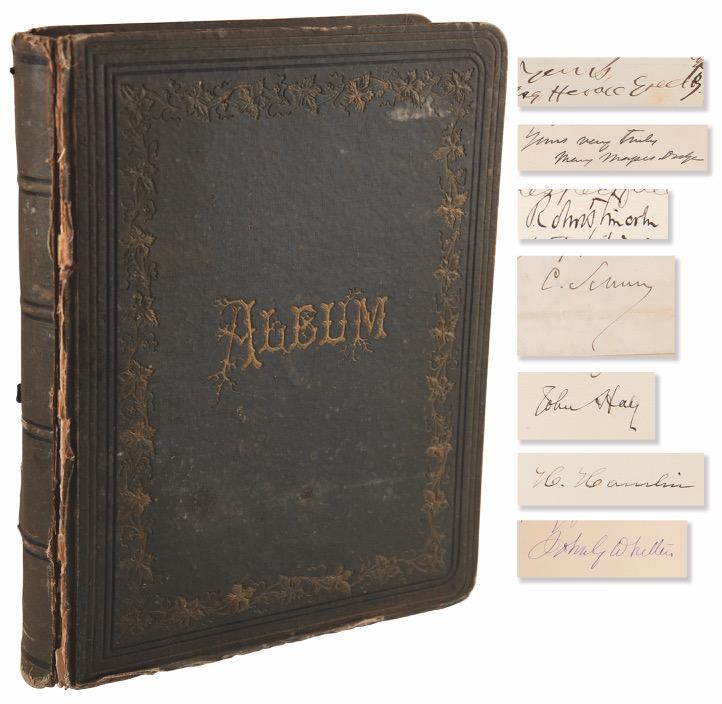 ALBUM
Yours,
Horace Greeley
Yours very truly
Mary Mapes Dodge
Robert T. Lincoln
C. Schurz
John Hay
H. Hamlin
John G Whittier